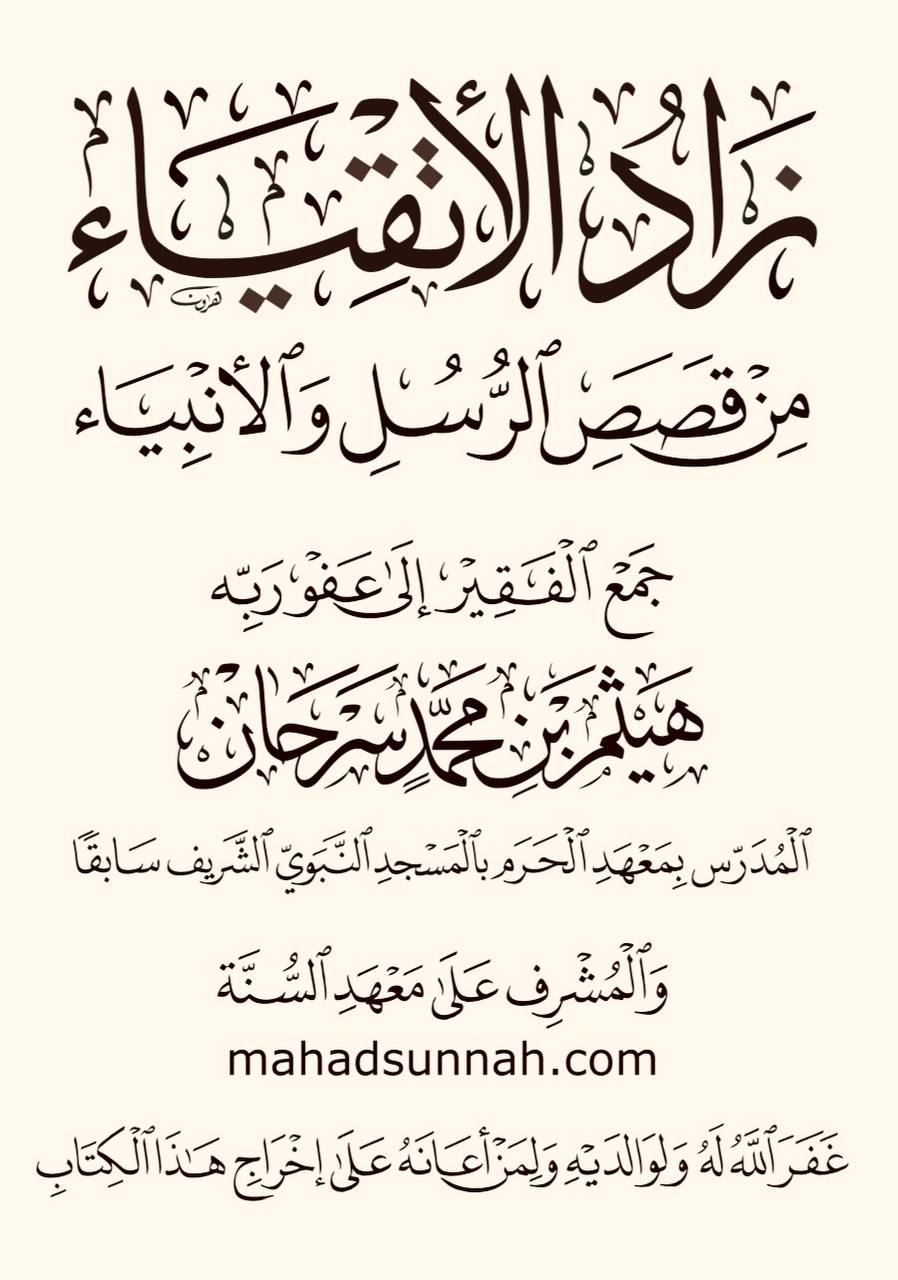 زَادُ الأَتْقِيَاء
مِنْ قَصَصِ ٱلرُّسُلِ وَٱلأَنْبِيَاء
جَمْعُ ٱلْفَقِيْرِ إِلَىٰ عَفْوِ رَبِّه
هَيْثَم بْنِ مُحَمَّدٍ سَرْحَان
ٱلْمُدَرّس بِمَعْهَدِ ٱلْحَرَم بٱلْمَسْجدِ ٱلنَّبَويّ ٱلشَّريف سَابقًا
وَٱلْمُشْرِف عَلَىٰ مَعْهَدِ ٱلسُّنَّة
mahadsunnah.com
غَفَرَ ٱللَّهُ لَهُ وَلوَالدَيْهِ وَلِمَنْ أَعَانَهُ عَلَىٰ إخْرَاجِ هَـٰذَا ٱلْكِتَابِ